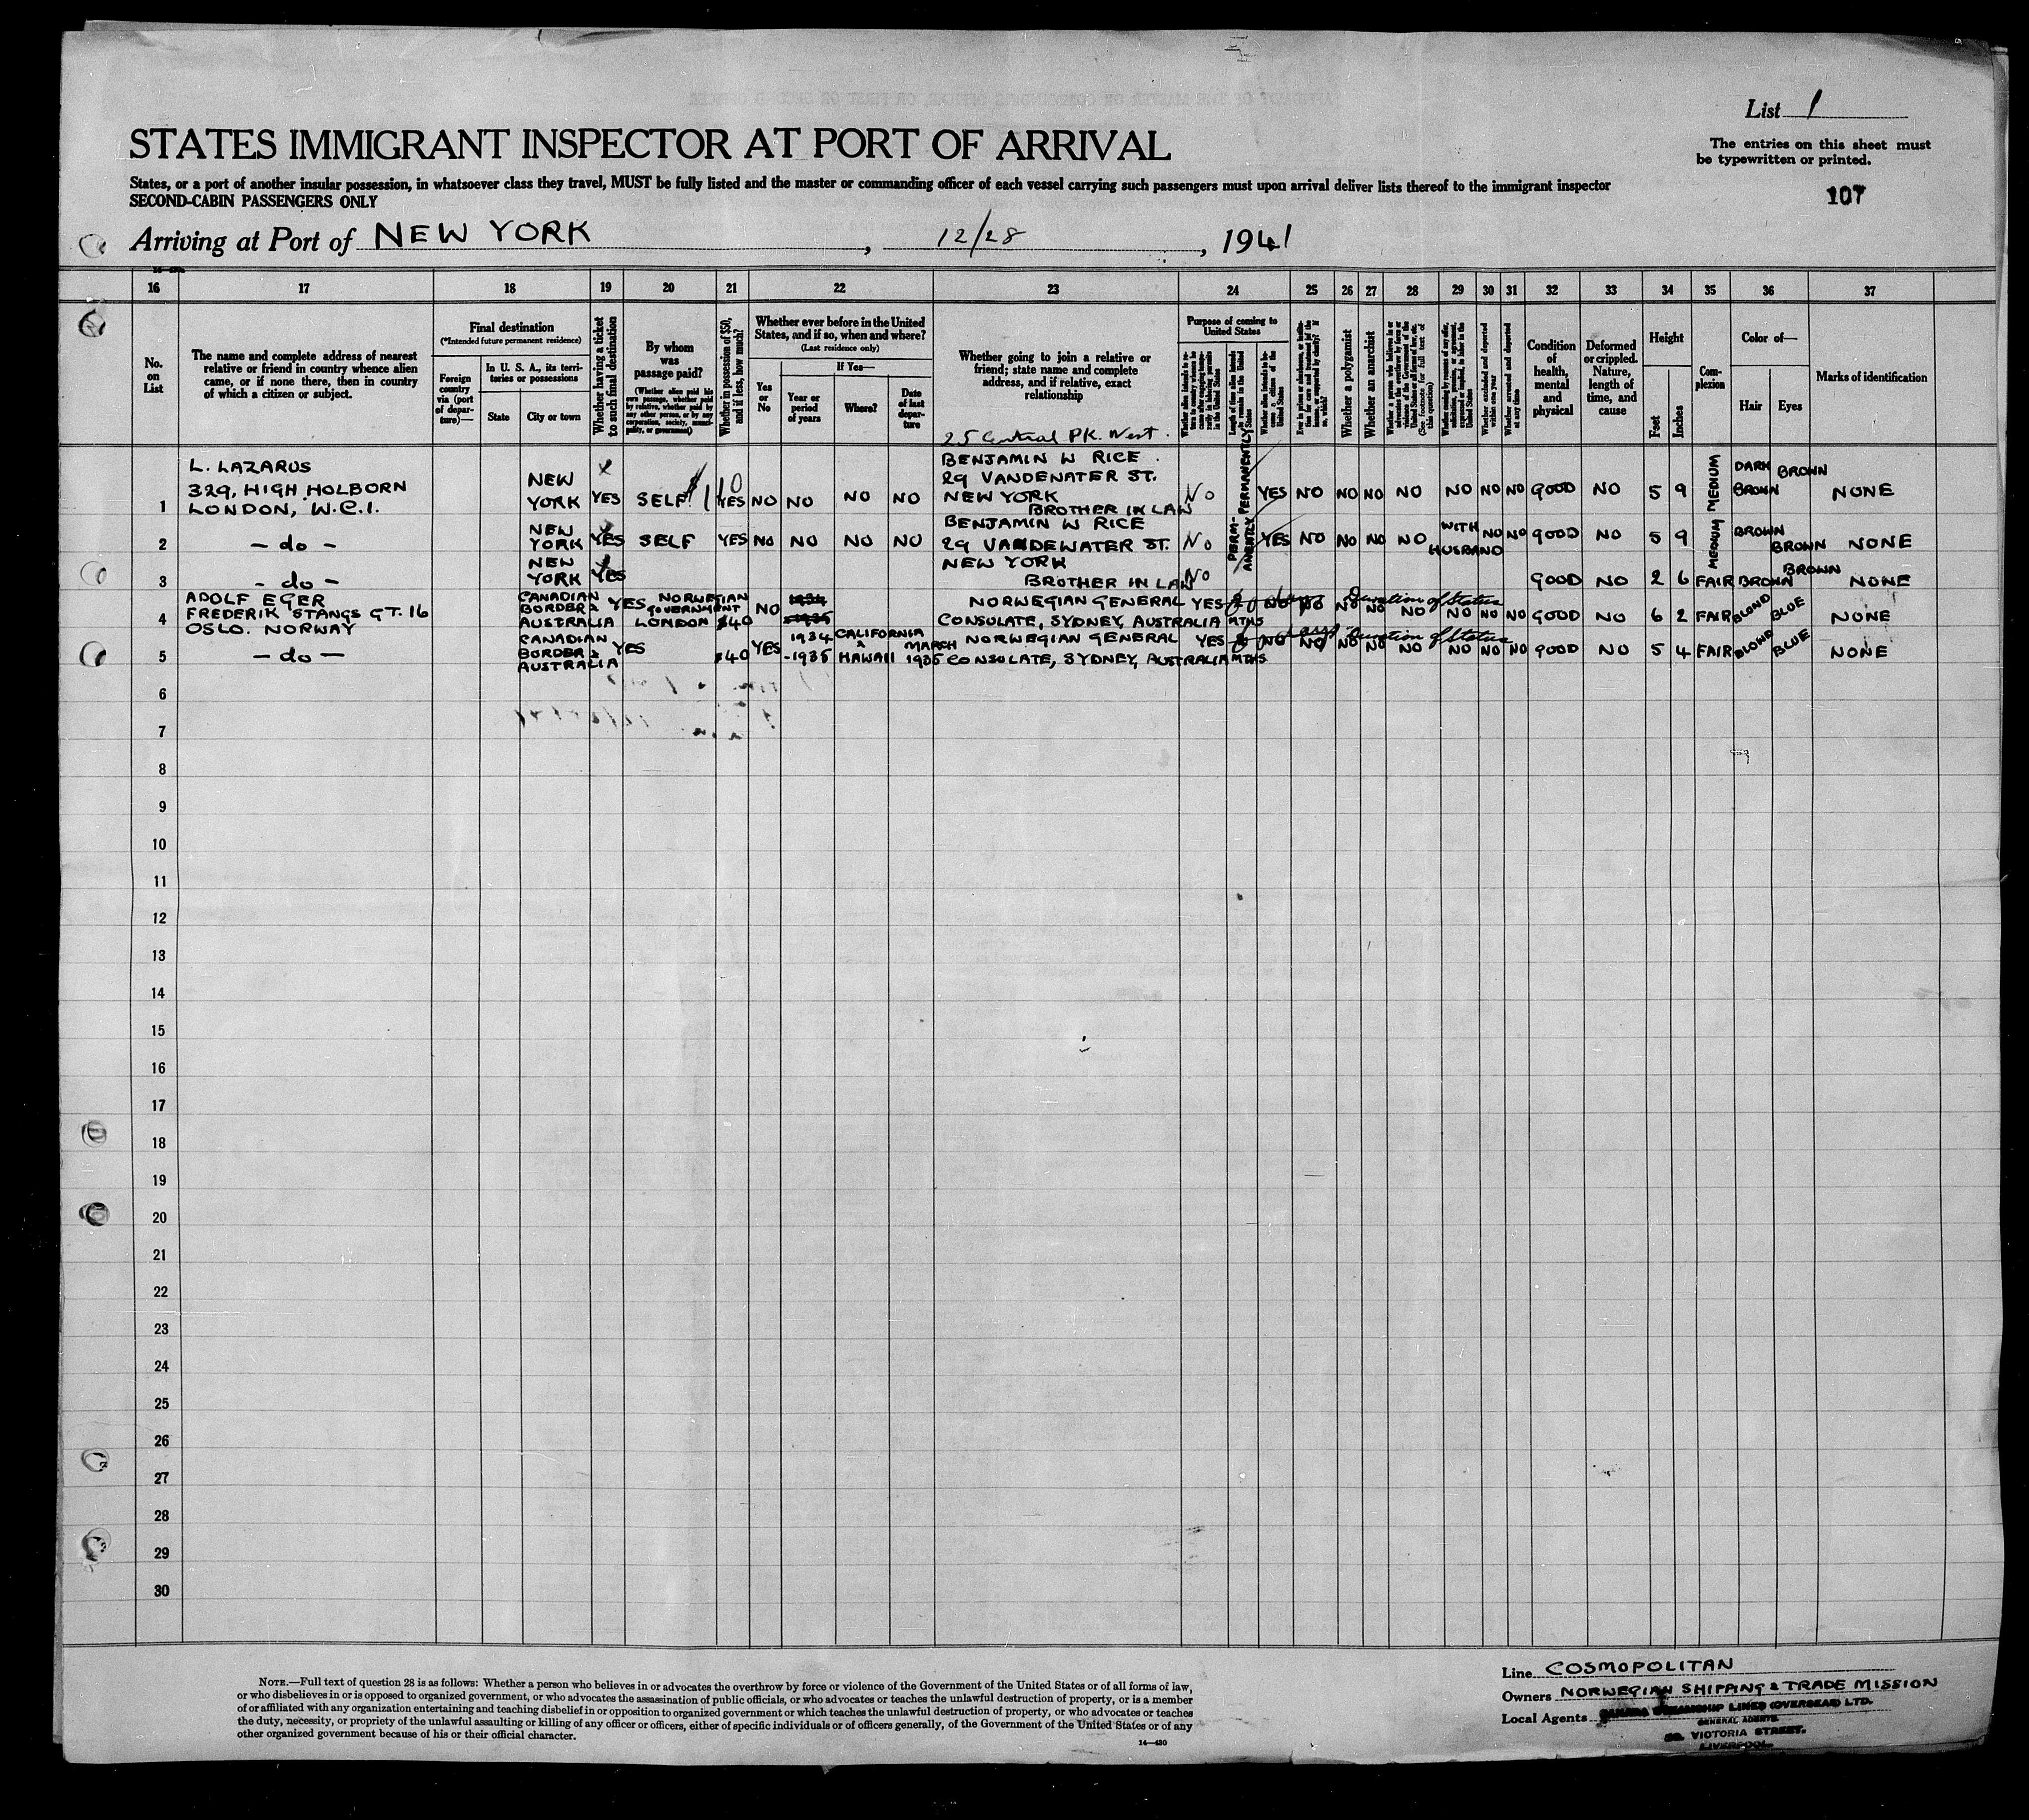 List 1
STATES IMMIGRANT INSPECTOR AT PORT OF ARRIVAL
The entries on this sheet must
be typewritten or printed.
States, or a port of another insular possession, in whatsoever class they travel, MUST be fully listed and the master or commanding officer of each vessel carrying such passengers must upon arrival deliver lists thereof to the immigrant inspector
SECOND-CABIN PASSENGERS ONLY
107
Arriving at Port of NEW YORK, 12/28, 1941
16 17 18 19 20 21 22 23 24 25 26 27 28 29 30 31 32 33 34 35 36 37
No.
on
List
The name and complete address of nearest
relative or friend in country whence alien
came, or if none there, then in country
of which a citizen or subject.
Final destination
(*Intended future permanent residence)
Foreign
country
via (port
of depar-
ture)—
In U. S. A., its terri-
tories or possessions
State
City or town
Whether having a ticket
to such final destination
By whom
was
passage paid?
(Whether alien paid his
own passage, whether paid
by relative, whether paid by
any other person, or by any
corporation, society, munici-
pality, or government)
Whether in possession of $50,
and if less, how much?
Whether ever before in the United
States, and if so, when and where?
(Last residence only)
Yes
or
No
If Yes—
Year or
period
of years
Where?
Date
of last
depar-
ture
Whether going to join a relative or
friend; state name and complete
address, and if relative, exact
relationship
Purpose of coming to
United States
Whether a polygamist
Whether an anarchist
Whether excluded and deported
within one year
Whether arrested and deported
at any time
Condition
of
health,
mental
and
physical
Deformed
or crippled.
Nature,
length of
time, and
cause
Height
Feet
Inches
Com-
plexion
Color of—
Hair
Eyes
Marks of identification
25 Central Pk. West.
1 L. LAZARUS
329, HIGH HOLBORN
LONDON, W.C.1.
NEW
YORK YES SELF $110 YES NO NO NO NO
BENJAMIN W RICE.
29 VANDENATER ST.
NEW YORK
BROTHER IN LAW
No PERMANENTLY YES NO NO NO NO NO NO NO GOOD NO 5 9 MEDIUM DARK BROWN BROWN NONE
2 — do —
NEW
YORK YES SELF YES NO NO NO NO
BENJAMIN W RICE
29 VANDEWATER ST.
NEW YORK
BROTHER IN LAW
No PERM-
ANENTLY YES NO NO NO NO WITH HUSBAND NO NO GOOD NO 5 9 MEDIUM BROWN BROWN NONE
3 — do —
NEW
YORK YES
No GOOD NO 2 6 FAIR BROWN BROWN NONE
4 ADOLF EGER
FREDERIK STANGS GT. 16
OSLO. NORWAY
CANADIAN
BORDER &
AUSTRALIA
YES NORWEGIAN
GOVERNMENT
LONDON $40 NO 1934
-1935
NORWEGIAN GENERAL
CONSULATE, SYDNEY, AUSTRALIA
YES MTHS NO NO Duration of Status NO NO NO NO NO NO GOOD NO 6 2 FAIR BLOND BLUE NONE
5 — do —
CANADIAN
BORDER &
AUSTRALIA
YES $40 YES 1934
-1935
CALIFORNIA
&
HAWAII
MARCH
1935
NORWEGIAN GENERAL
CONSULATE, SYDNEY, AUSTRALIA
YES MTHS NO NO days duration of Status NO NO NO NO NO NO GOOD NO 5 4 FAIR BLOND BLUE NONE
6
7
8
9
10
11
12
13
14
15
16
17
18
19
20
21
22
23
24
25
26
27
28
29
30
NOTE.—Full text of question 28 is as follows: Whether a person who believes in or advocates the overthrow by force or violence of the Government of the United States or of all forms of law,
or who disbelieves in or is opposed to organized government, or who advocates the assassination of public officials, or who advocates or teaches the unlawful destruction of property, or is a member
of or affiliated with any organization entertaining and teaching disbelief in or opposition to organized government or which teaches the unlawful destruction of property, or who advocates or teaches
the duty, necessity, or propriety of the unlawful assaulting or killing of any officer or officers, either of specific individuals or of officers generally, of the Government of the United States or of any
other organized government because of his or their official character.
14—430
Line COSMOPOLITAN
Owners NORWEGIAN SHIPPING & TRADE MISSION
Local Agents CANADA STEAMSHIP LINES (OVERSEAS) LTD.
GENERAL AGENTS
VICTORIA STREET.
LIVERPOOL.